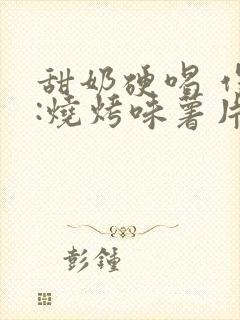 甜奶硬唱
:燒烤味薯片
彭鍾